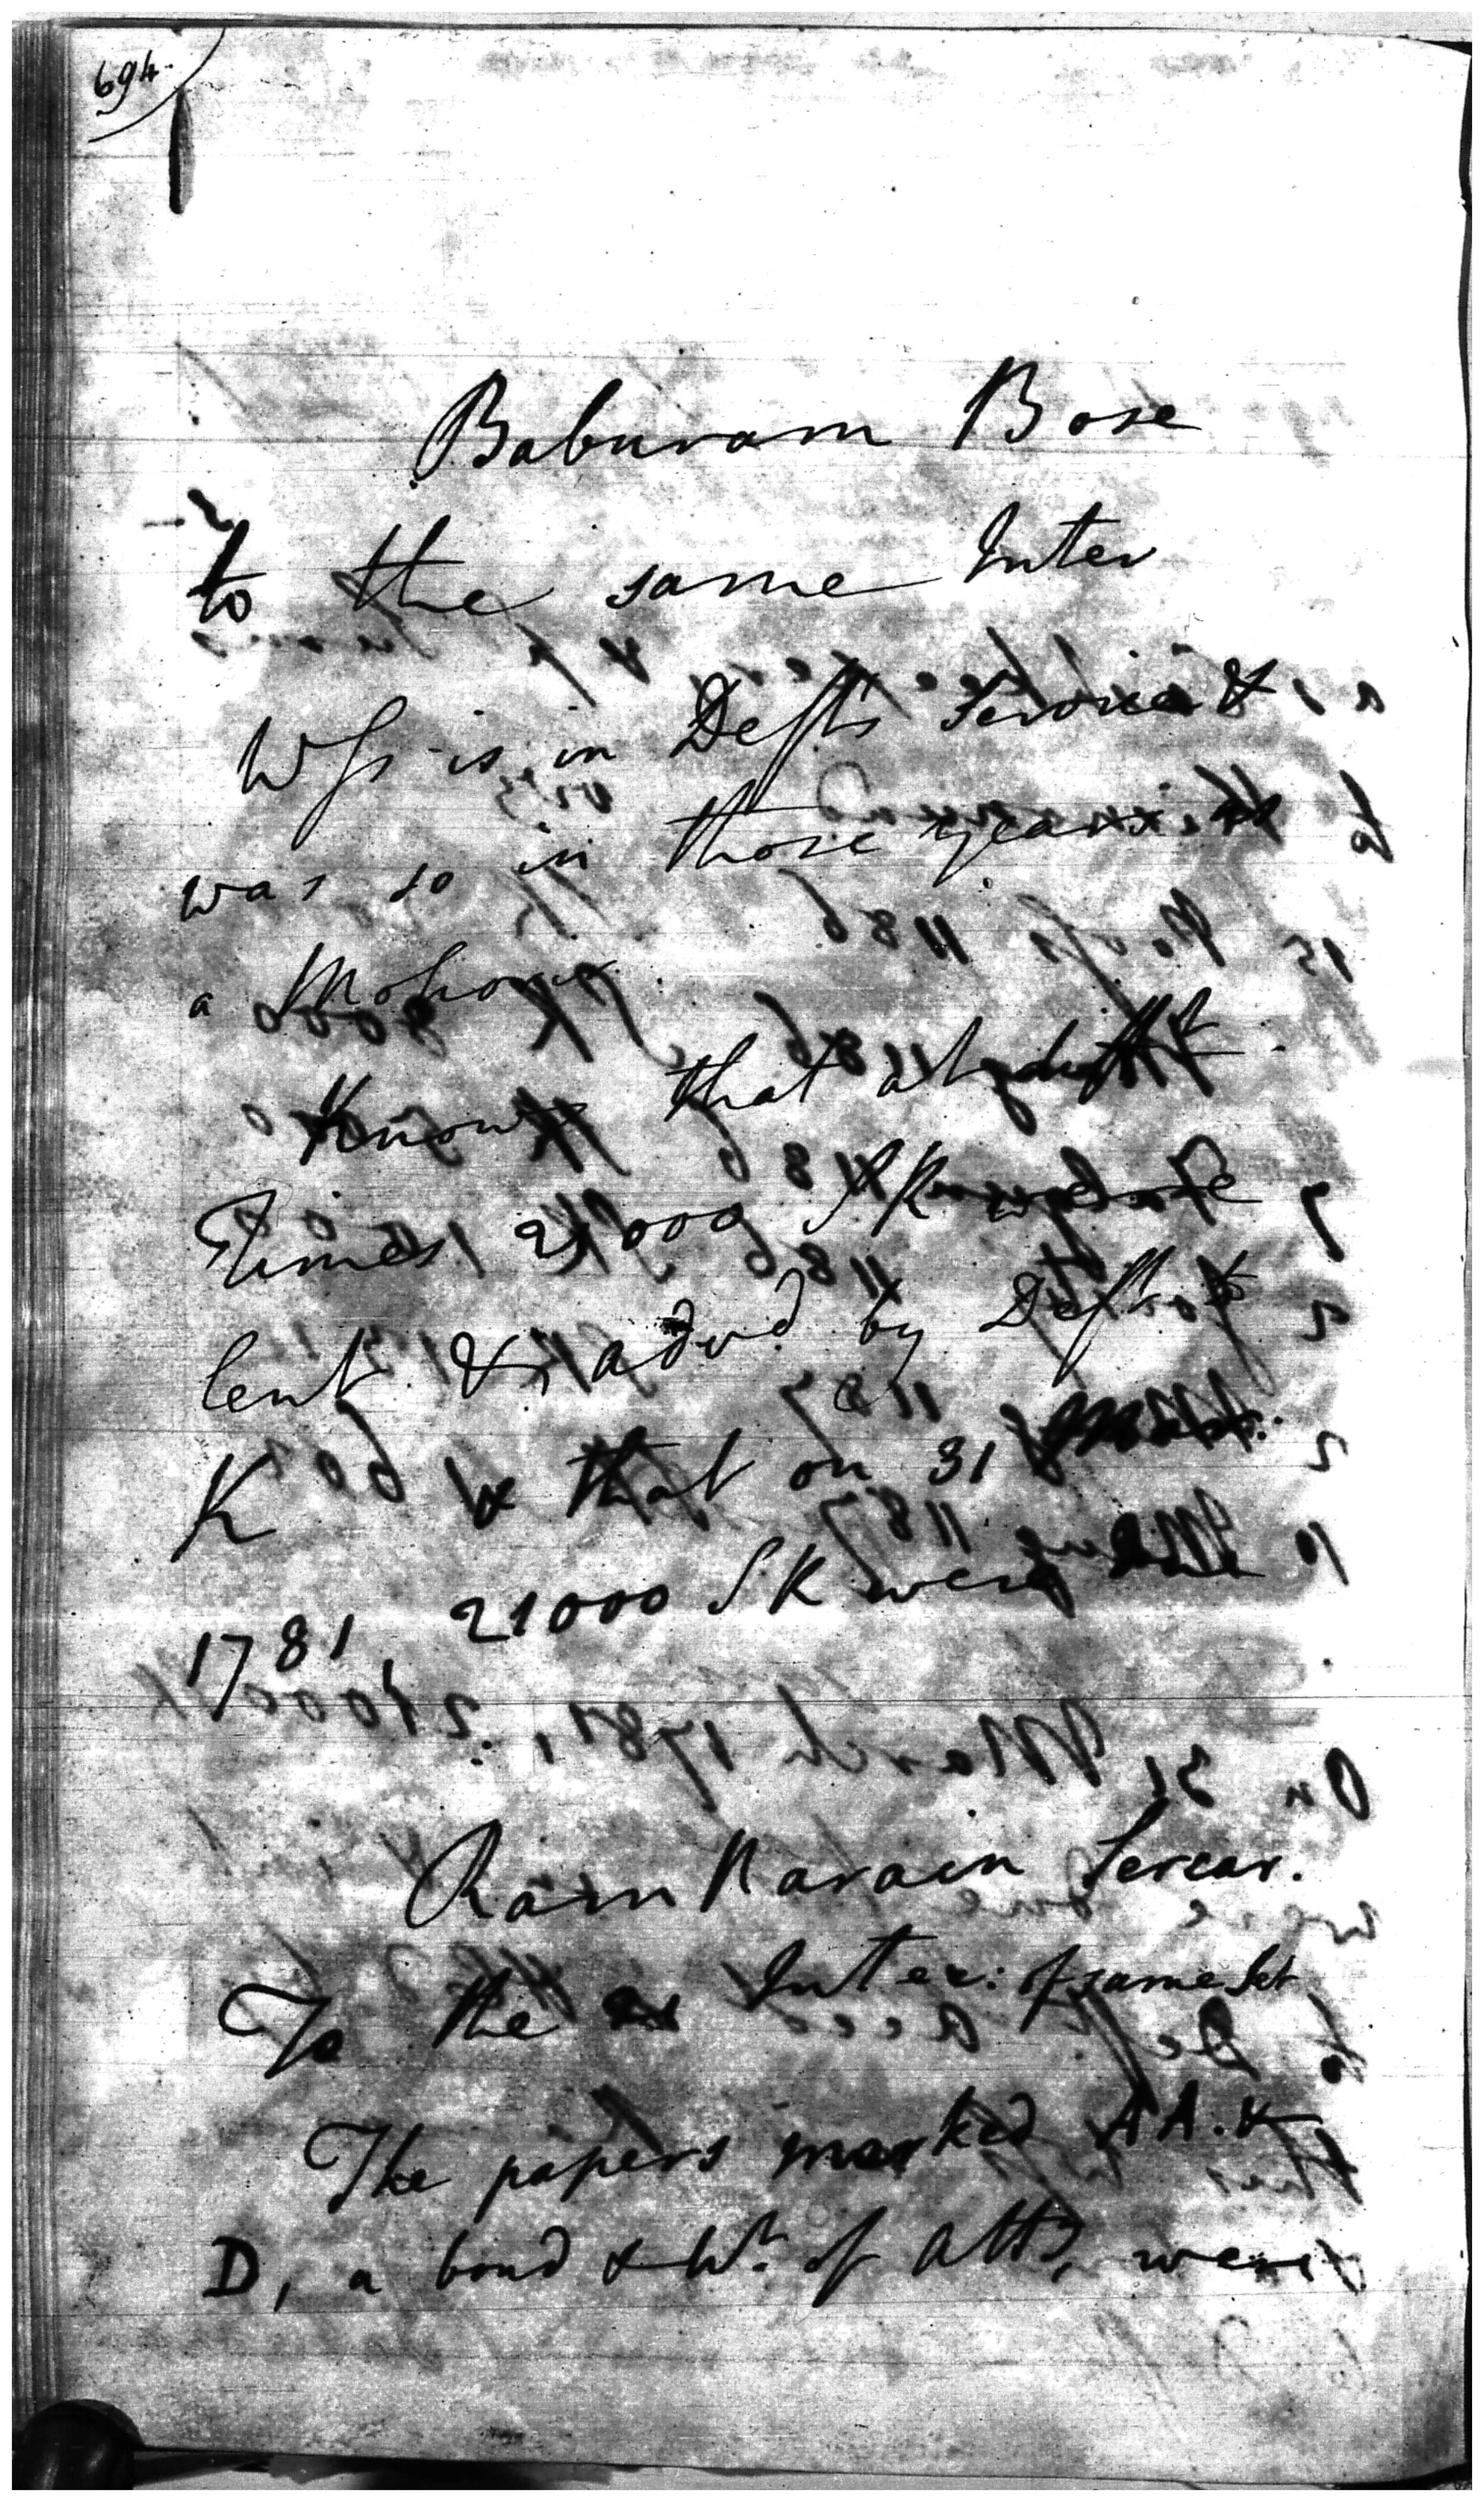 694.
Baburam Bose
to the same Inter
Wss is in Deft's Service &
was so in those years as
a Mohorer
Knows that at difft
Times 21000 SR were
lent & advd by Deft to
K & that on 31 March
1781, 21000 SR were due
Ram Narain Sercar.
To the Inter: of same Set
The papers marked AA. &
D, a bond & Wt. of Atty, were